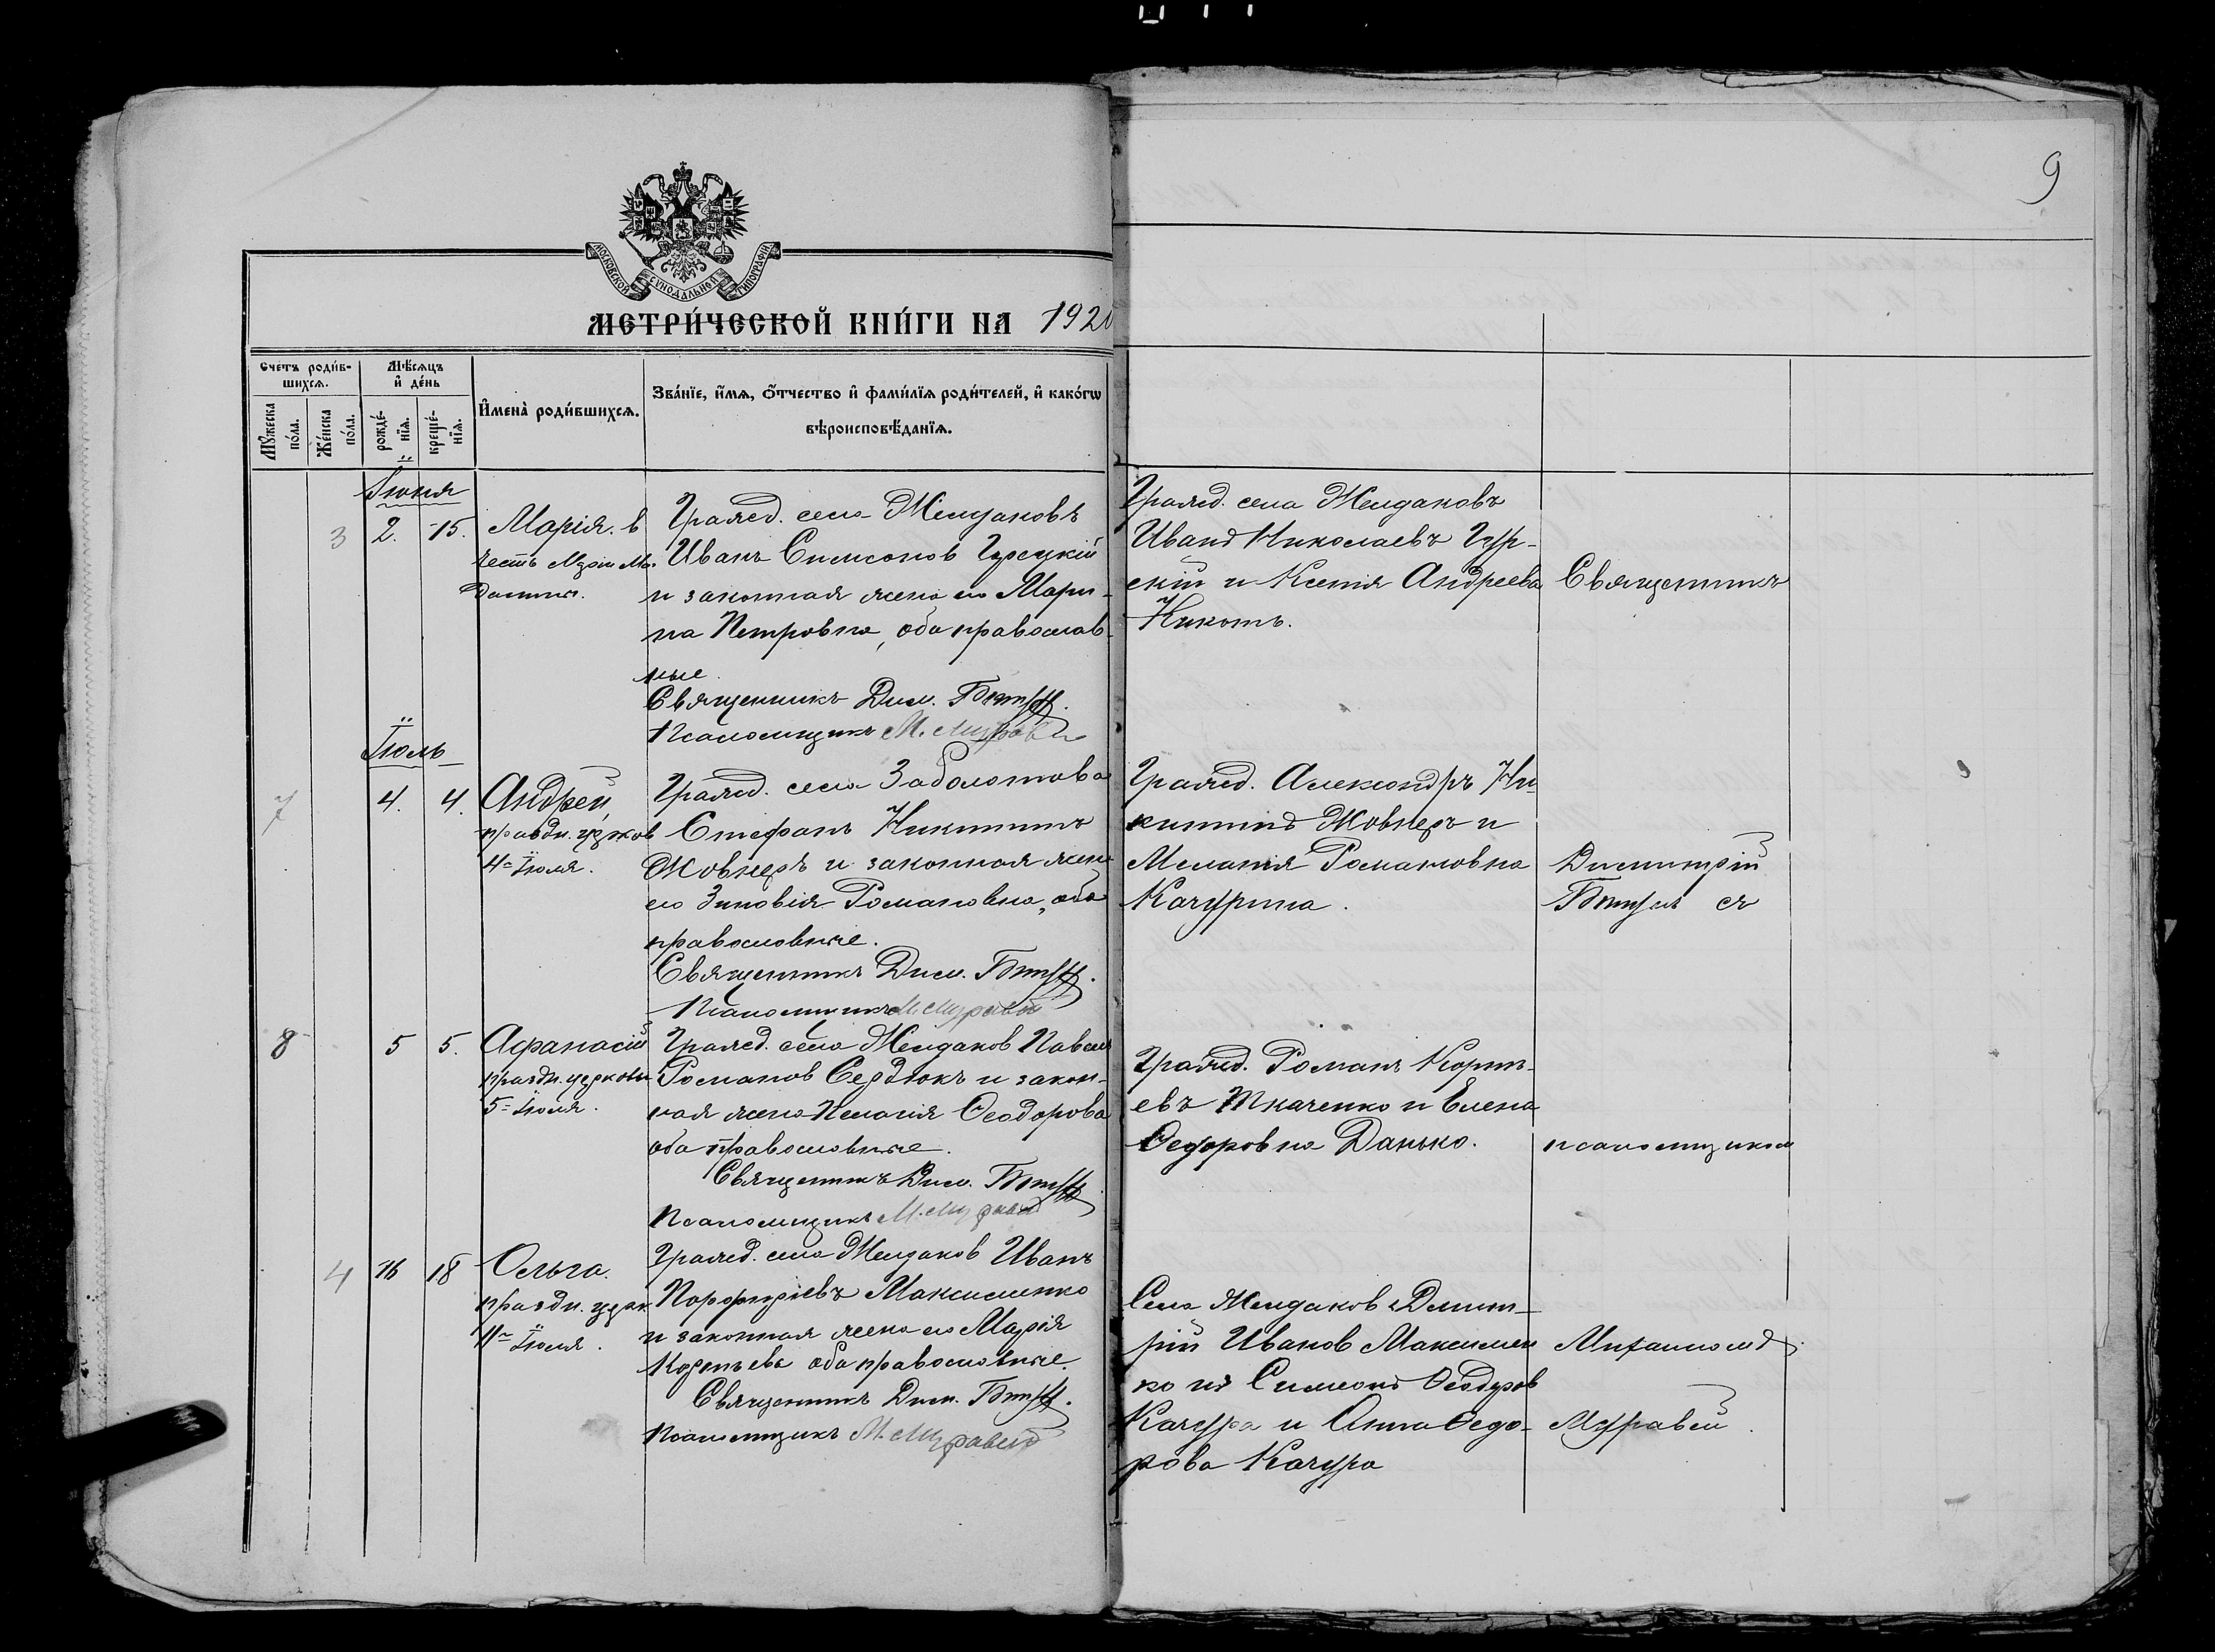 9
МОСКОВСКОЙ СѴНОДАЛЬНОЙ ТИПОГРАФІИ
МЕТРИ́ЧЕСКОЙ КНИ́ГИ НА 1920
Счетъ роди́в-
шихсѧ.
Мѣ́сѧцъ
и҆ де́нь
Мꙋ́жеска
по́ла.
Же́нска
по́ла.
рожде́-
нїѧ.
креще́-
нїѧ.
И҆мена̀ роди́вшихсѧ.
Зва́нїе, и҆́мѧ, ѻ҆́тчество и҆ фами́лїѧ роди́телей, и҆ како́гѡ
вѣроисповѣ́данїѧ.
Іюня
3 2. 15. Марія. в
честь
Гражд. села Желдаковъ
Иванъ Симеонов Гурскій
и законная жена его Мари-
на Петровна, оба православ-
ные.
Священникъ Дим.
Псаломщикъ М. Муравей
Гражд. села Желдаковъ
Иванъ Николаевъ Гур-
скій и Ксенія Андреева
Священникъ
Іюль
7 4. 4. Андрей,
праздн. церков
4го Іюля.
Гражд. села Заболотова
Стефанъ Никитинъ
Жовнеръ и законная жена
его Зиновія Романовна, оба
православные.
Священникъ Дим.
Псаломщикъ М. Муравей
Гражд. Александръ Ни-
китинъ Жовнеръ и
Меланія Романовна
Качурина.
Димитрій
8 5 5. Афанасій
праздн. церковн
5го Іюля.
Гражд. села Желдаков Павелъ
Романов Сердюкъ и закон-
ная жена Пелагія Феодорова
оба православные.
Священникъ Дим.
Псаломщикъ М. Муравей
Гражд. Романъ Корни-
евъ Ткаченко и Елена
Федоровна Данько.
псаломщиком
4 16 18 Ольга.
праздн. церк
11го Іюля.
Гражд. села Желдаков Иванъ
Порфиріевъ Максименко
и законная жена его Марія
Корніева оба православные.
Священникъ Дим.
Псаломщикъ М. Муравей
Села Желдаков Димит-
рій Иванов Максимен
ко и Симеонъ Феодоров
Качура и Анна Федо-
рова Качура
Михаиломъ
Муравей.